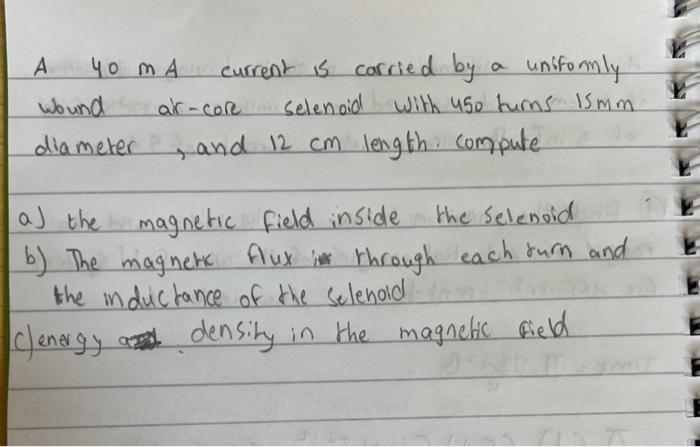 A 40 mA current is carried by a uniformly
wound air-core selenoid with 450 turns 15mm
diameter , and 12 cm length. compute
a) the magnetic field inside the selenoid
b) The magnetic flux through each turn and
the inductance of the selenoid
c) energy density in the magnetic field